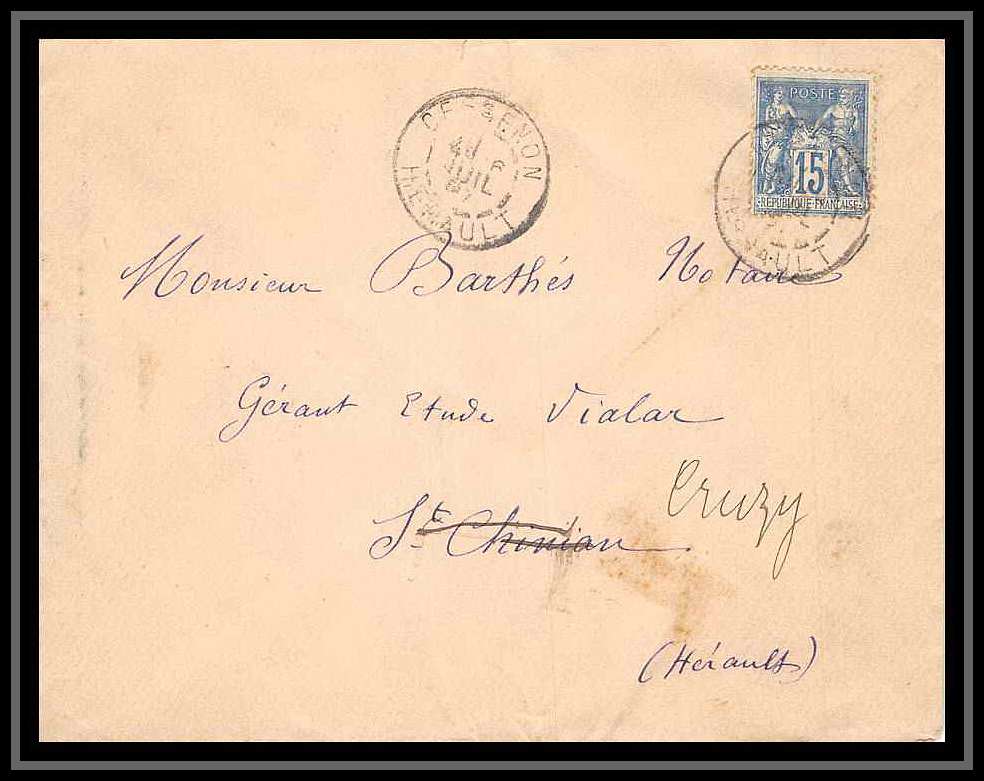 CESSENON
6
JUIL
HERAULT
POSTE
15
REPUBLIQUE FRANÇAISE
HERAULT
Monsieur Barthés Notaire
Gérant Etude Vialar
St Chinian Cruzy
(Hérault)